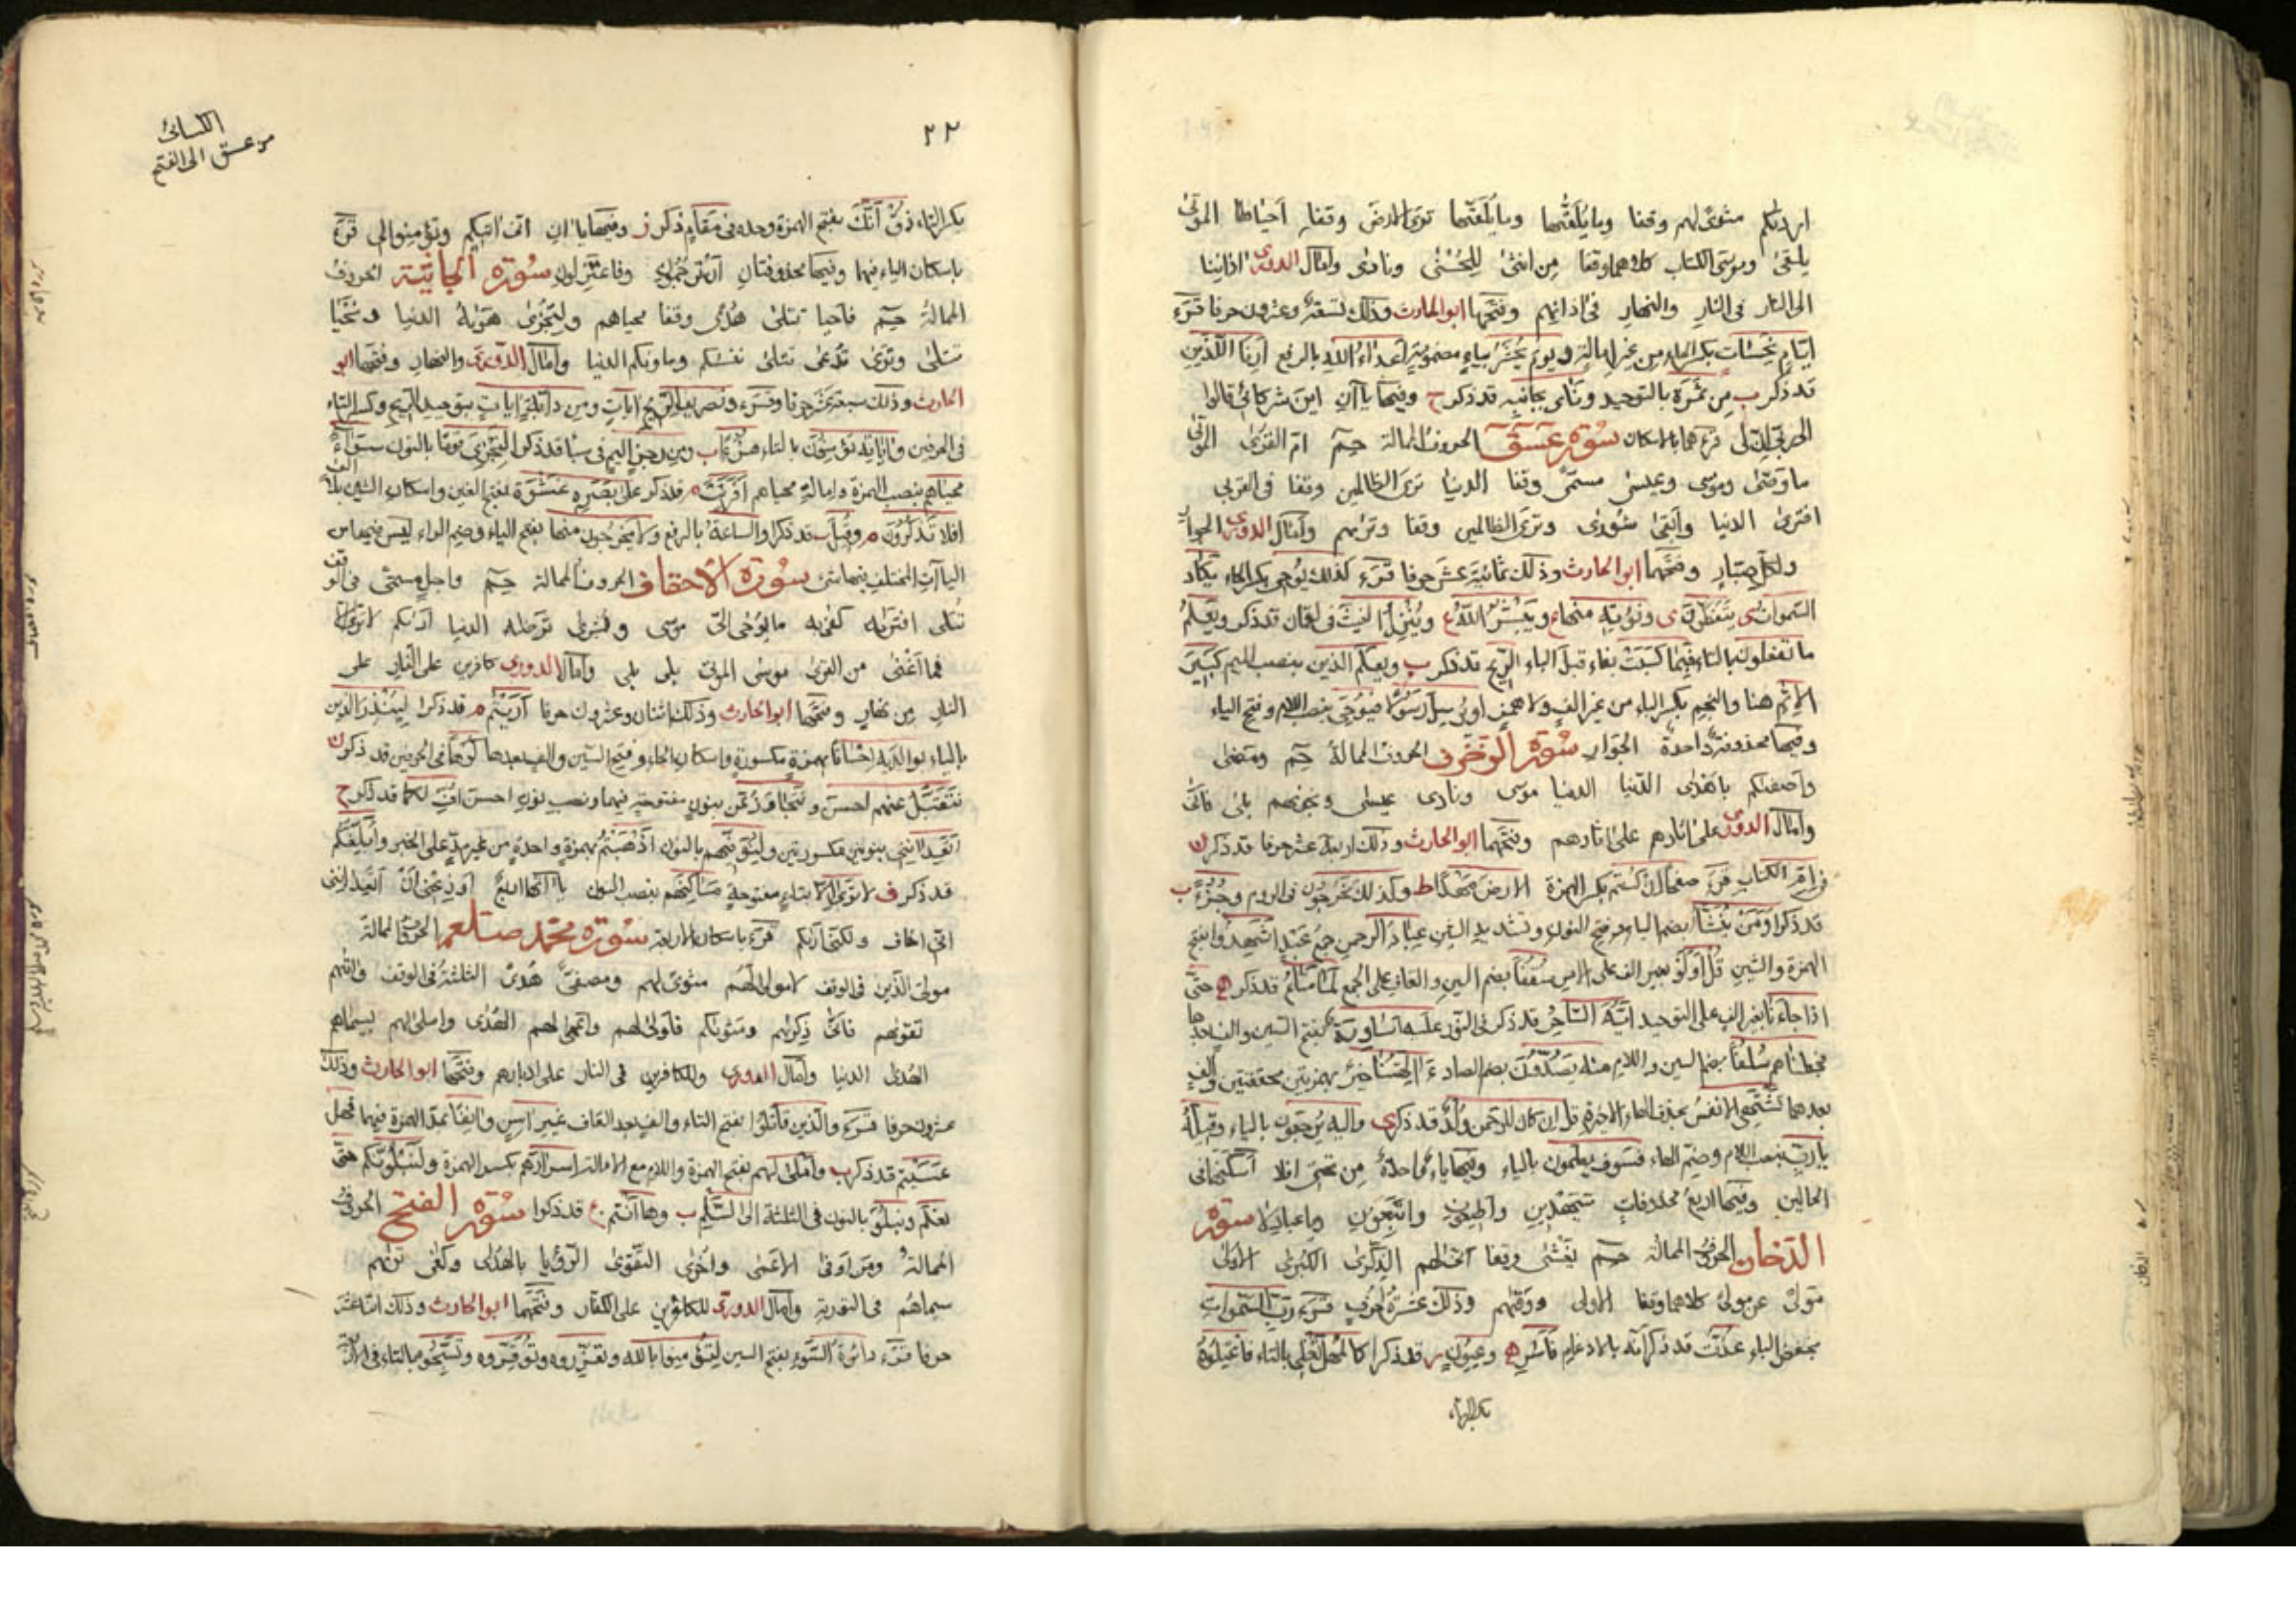 ارديكم مثوى لهم وقفا وما يلقيها وما يلقيها ترى الارض وقفا احياها الموتى
يلقى وموسى الكتاب كلاهما وقفا من انثى للحسنى ونادى وامال الدورى اذاننا
الى النار فى النار والنهار فى اذانهم وفتحها ابو الحارث وذلك تسعة وعشرون حرفا قرء
ايام نحسات بكسر الحاء من غير امالة ويوم يحشر بياء مضمومة اعداء الله بالرفع ارنا اللذين
قد ذكر ب من ثمرة بالتوحيد ونأى بجانبه قد ذكر ح وفيها ياآن اين شركائى قالوا
الى ربى ان لى قرءهما بالاسكان سورة عسق الحروف الممالة حم ام القرى الموتى
ما وصى وموسى وعيسى مسمى وقفا الدنيا ترى الظالمين وقفا فى القربى
افترى الدنيا وابقى شورى وترى الظالمين وقفا وتريهم وامال الدورى الجوار
ولكل صبار وفتحها ابو الحارث وذلك ثمانية عشر حرفا قرء كذلك يوحى بكسر الحاء يكاد
السموات ى يتفطرن ى ونؤته منها ع ويبشر الله ع وينزل الغيث فى لقمان قد ذكر ويعلم
ما تفعلون بالتاء فبما كسبت بفاء قبل الباء الريح قد ذكر ب ويعلم الذين بنصب الميم كبير
الاثم هنا والنجم بكسر الباء من غير الف ولا همز او يرسل رسولا فيوحى بنصب اللام وفتح الياء
وفيها محذوفة واحدة الجوار سورة الزخرف الحروف الممالة حم ومضى
واصفيكم باهدى الدنيا الدنيا موسى ونادى عيسى ونجويهم بلى فانى
وامال الدورى على اثارهم على اثارهم وفتحها ابو الحارث وذلك اربعة عشر حرفا قد ذكر ن
فى ام الكتاب قرء صفحا ان كنتم بكسر الهمزة الارض مهدا ط وكذلك تخرجون فى الروم وجزءا ب
قد ذكرا ومن ينشأ بضم الياء وفتح النون وتشديد الشين عباد الرحمن جمع عبد اشهدوا بفتح
الهمزة والشين قل اولو بغير الف على الامر سقفا بضم السين والقاف على الجمع لما متاع قد ذكر ه حتى
اذا جاءنا بغير الف على التوحيد ايه الساحر قد ذكر فى النور عليه اساورة بفتح السين والف بعدها
فجعلناهم سلفا بضم السين واللام مثله يصدون بضم الصاد ءالهتنا خير بهمزتين محققتين والف
بعدهما تشتهى الانفس بحذف الهاء الاخيرة قل ان كان للرحمن ولد قد ذكر ى واليه يرجعون بالياء وقيله
يا رب بنصب اللام وضم الهاء فسوف يعلمون بالياء وفيها ياء واحدة من تحتى افلا اسكنها فى
الحالين وفيها اربع محذوفات سيهدين واطيعون واتبعون يا عباد لا سورة
الدخان الحروف الممالة حم يغشى وقفا انى لهم الذكرى الكبرى الاولى
مولى عن مولى كلاهما وقفا الاولى ووقيهم وذلك عشرة احرف قرء رب السموات
بخفض الباء عذت قد ذكر انه بالادغام فاسر ه وعيون م قد ذكرا كالمهل تغلى بالتاء فاعتلوه
بكسر التاء
٢٢
الكسائى
من عسق الى الفتح
بكسر التاء ذق انك بفتح الهمزة وحده فى مقام ذكر ز وفيها ياآن انى اتيكم وتؤمنوا لى قرء
باسكان الياء فيهما وفيها محذوفتان ان ترجمون وفاعتزلون سورة الجاثية الحروف
الممالة حم فاحيا تتلى هدى وقفا محياهم ولتجزى هويه الدنيا ونحيا
تتلى وترى تدعى تتلى ننسيكم وماويكم الدنيا وامال الدورى والنهار وفتحها ابو
الحارث وذلك سبعة عشر حرفا وقرء وتصريف الريح ايات ومن دابة ايات بتوحيد الريح وكسر التاء
فى الحرفين واياته تؤمنون بالتاء هزؤا ب ومن رجز اليم فى سبأ قد ذكر لنجزى قوما بالنون سواء
محياهم بنصب الهمزة وامالة محياهم افرأيت م قد ذكر على بصره غشوة بفتح الغين واسكان الشين بلا الف
افلا تذكرون م وقيل ب قد ذكرا والساعة بالرفع ولا يخرجون منها بفتح الياء وضم الراء ليس فيها من
الياآت المختلف فيها شئ سورة الاحقاف الحروف الممالة حم واجل مسمى فى الوقف
تتلى افتريه كفى به ما يوحى الى موسى وبشرى ترضيه الدنيا اريكم لا ترى
فما اغنى من القرى موسى الموتى بلى بلى وامال الدورى كافرين على النار على
النار من نهار وفتحها ابو الحارث وذلك اثنان وعشرون حرفا أريتم م قد ذكرا لينذر الذين
بالياء بوالديه احسانا بهمزة مكسورة واسكان الحاء وفتح السين والف بعدها كرها فى الحرفين قد ذكر ن
نتقبل عنهم احسن ونتجاوز عن بنون مفتوحة فيهما ونصب نون احسن اف لكما قد ذكر ح
اتعداننى بنونين مكسورتين ولنوفيهم بالنون اذهبتم بهمزة واحدة من غير مد على الخبر وابلغكم
قد ذكر ف لا ترى الا بتاء مفتوحة مساكنهم بنصب النون ياآتها اربع اوزعنى ان اتعداننى
انى اخاف ولكنى اريكم قرء باسكان الاربعة سورة محمد صلعم الحروف الممالة
مولى الذين فى الوقف لا مولى لهم مثوى لهم ومصفى هدى الثلثة فى الوقف واتيهم
تقويهم فانى ذكريهم ومثويكم فاولى لهم واعمى لهم الهدى واملى لهم بسيماهم
الهدى الدنيا وامال الدورى وللكافرين فى النار على ادبارهم وفتحها ابو الحارث وذلك
عشرون حرفا قرء والذين قاتلوا بفتح التاء والف بعد القاف غير اسن وانفا بمد الهمزة فيهما فهل
عسيتم قد ذكر ب واملى لهم بفتح الهمزة واللام مع الامالة اسرارهم بكسر الهمزة ولنبلونكم حتى
نعلم ونبلو بالنون فى الثلثة الى السلم ب وها انتم ع قد ذكروا سورة الفتح الحروف
الممالة ومن اوفى الاعمى واخرى التقوى الرؤيا بالهدى وكفى تريهم
سيماهم فى التورية وامال الدورى للكافرين على الكفار وفتحهما ابو الحارث وذلك اثنا عشر
حرفا قرء دائرة السوء بفتح السين لتؤمنوا بالله وتعزروه وتوقروه وتسبحوه بالتاء فى الاربعة